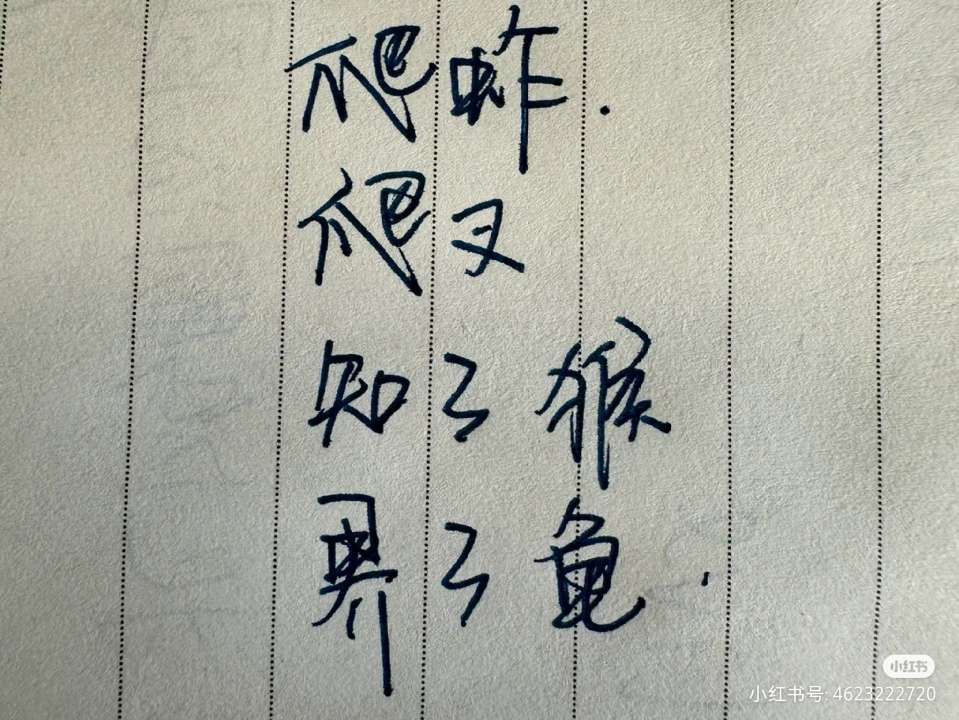 爬蚱.
爬叉
知了猴
了龟.
小红书
小红书号: 4623222720